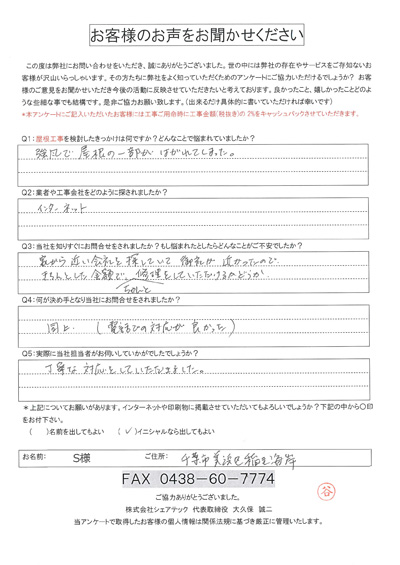 お客様のお声をお聞かせください
この度は弊社にお問い合わせをいただき、誠にありがとうございました。世の中には弊社の存在やサービスをご存知ないお
客様が沢山いらっしゃいます。その方たちに弊社をよく知っていただくためのアンケートにご協力いただけるでしょうか？ お客
様のご意見をお聞かせいただき今後の活動に反映させていただきたいと考えております。良かったこと、嬉しかったことどのよ
うな些細な事でも結構です。是非ご協力お願い致します。（出来るだけ具体的に書いていただければ幸いです）
*本アンケートにご記入いただいたお客様には工事ご用命時に工事金額(税抜き)の2%をキャッシュバックさせていただきます。
Q1：屋根工事を検討したきっかけは何ですか？どんなことで悩まれていましたか？
強風で屋根の一部がはがれてしまった。
Q2：業者や工事会社をどのように探されましたか？
インターネット
Q3：当社を知りすぐにお問合せをされましたか？もし悩まれたとしたらどんなことがご不安でしたか？
家から近い会社を探していて 御社が近かったので
きちんとした金額で、修理をしていただけるかどうか
ちゃんと
Q4：何が決め手となり当社にお問合せをされましたか？
同上 （電話での対応が良かった）
Q5：実際に当社担当者がお伺いしていかがでしたでしょうか？
丁寧な対応をしていただきました。
＊上記についてお願いがあります。インターネットや印刷物に掲載させていただいてもよろしいでしょうか？下記の中から〇印
をお付下さい。
（ ）名前を出してもよい （✓）イニシャルなら出してもよい
お名前： S様 ご住所： 千葉市美浜区稲毛海岸
FAX 0438-60-7774
ご協力ありがとうございました。
株式会社シェアテック 代表取締役 大久保 誠二
当アンケートで取得したお客様の個人情報は関係法規に基づき厳正に管理いたします。
谷